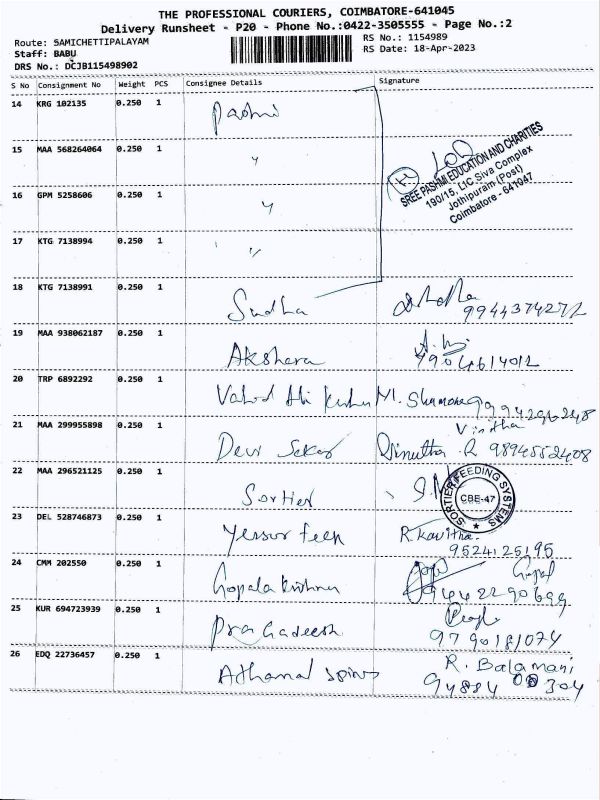 THE PROFESSIONAL COURIERS, COIMBATORE-641045
Delivery Runsheet - P20 - Phone No.:0422-3505555 - Page No.:2
Route: SAMICHETTIPALAYAM
Staff: BABU
DRS No.: DCJB115498902
RS No.: 1154989
RS Date: 18-Apr-2023
S No Consignment No Weight PCS Consignee Details Signature
14 KRG 102135 0.250 1 Pashmi
15 MAA 568264064 0.250 1 "
SREE PASHMI EDUCATION AND CHARITIES
190/15, LIC Siva Complex
Jothipuram (Post)
Coimbatore - 641047
16 GPM 5258606 0.250 1 "
17 KTG 7138994 0.250 1 "
18 KTG 7138991 0.250 1 Sudha
9944374272
19 MAA 938062187 0.250 1 Akshera
7904614012
20 TRP 6892292 0.250 1 Vahod Ali M.
21 MAA 299955898 0.250 1 Devi Sekar
9894552408
22 MAA 296521125 0.250 1 Sortier
SORTIER FEEDING SYSTEMS
CBE-47
23 DEL 528746873 0.250 1 R. Kavitha
9524125195
24 CMM 202550 0.250 1 Gopala Krishnan Gopal
25 KUR 694723939 0.250 1 Pragadeesh
9790181074
26 EDQ 22736457 0.250 1 R. Balamani
94884 00304